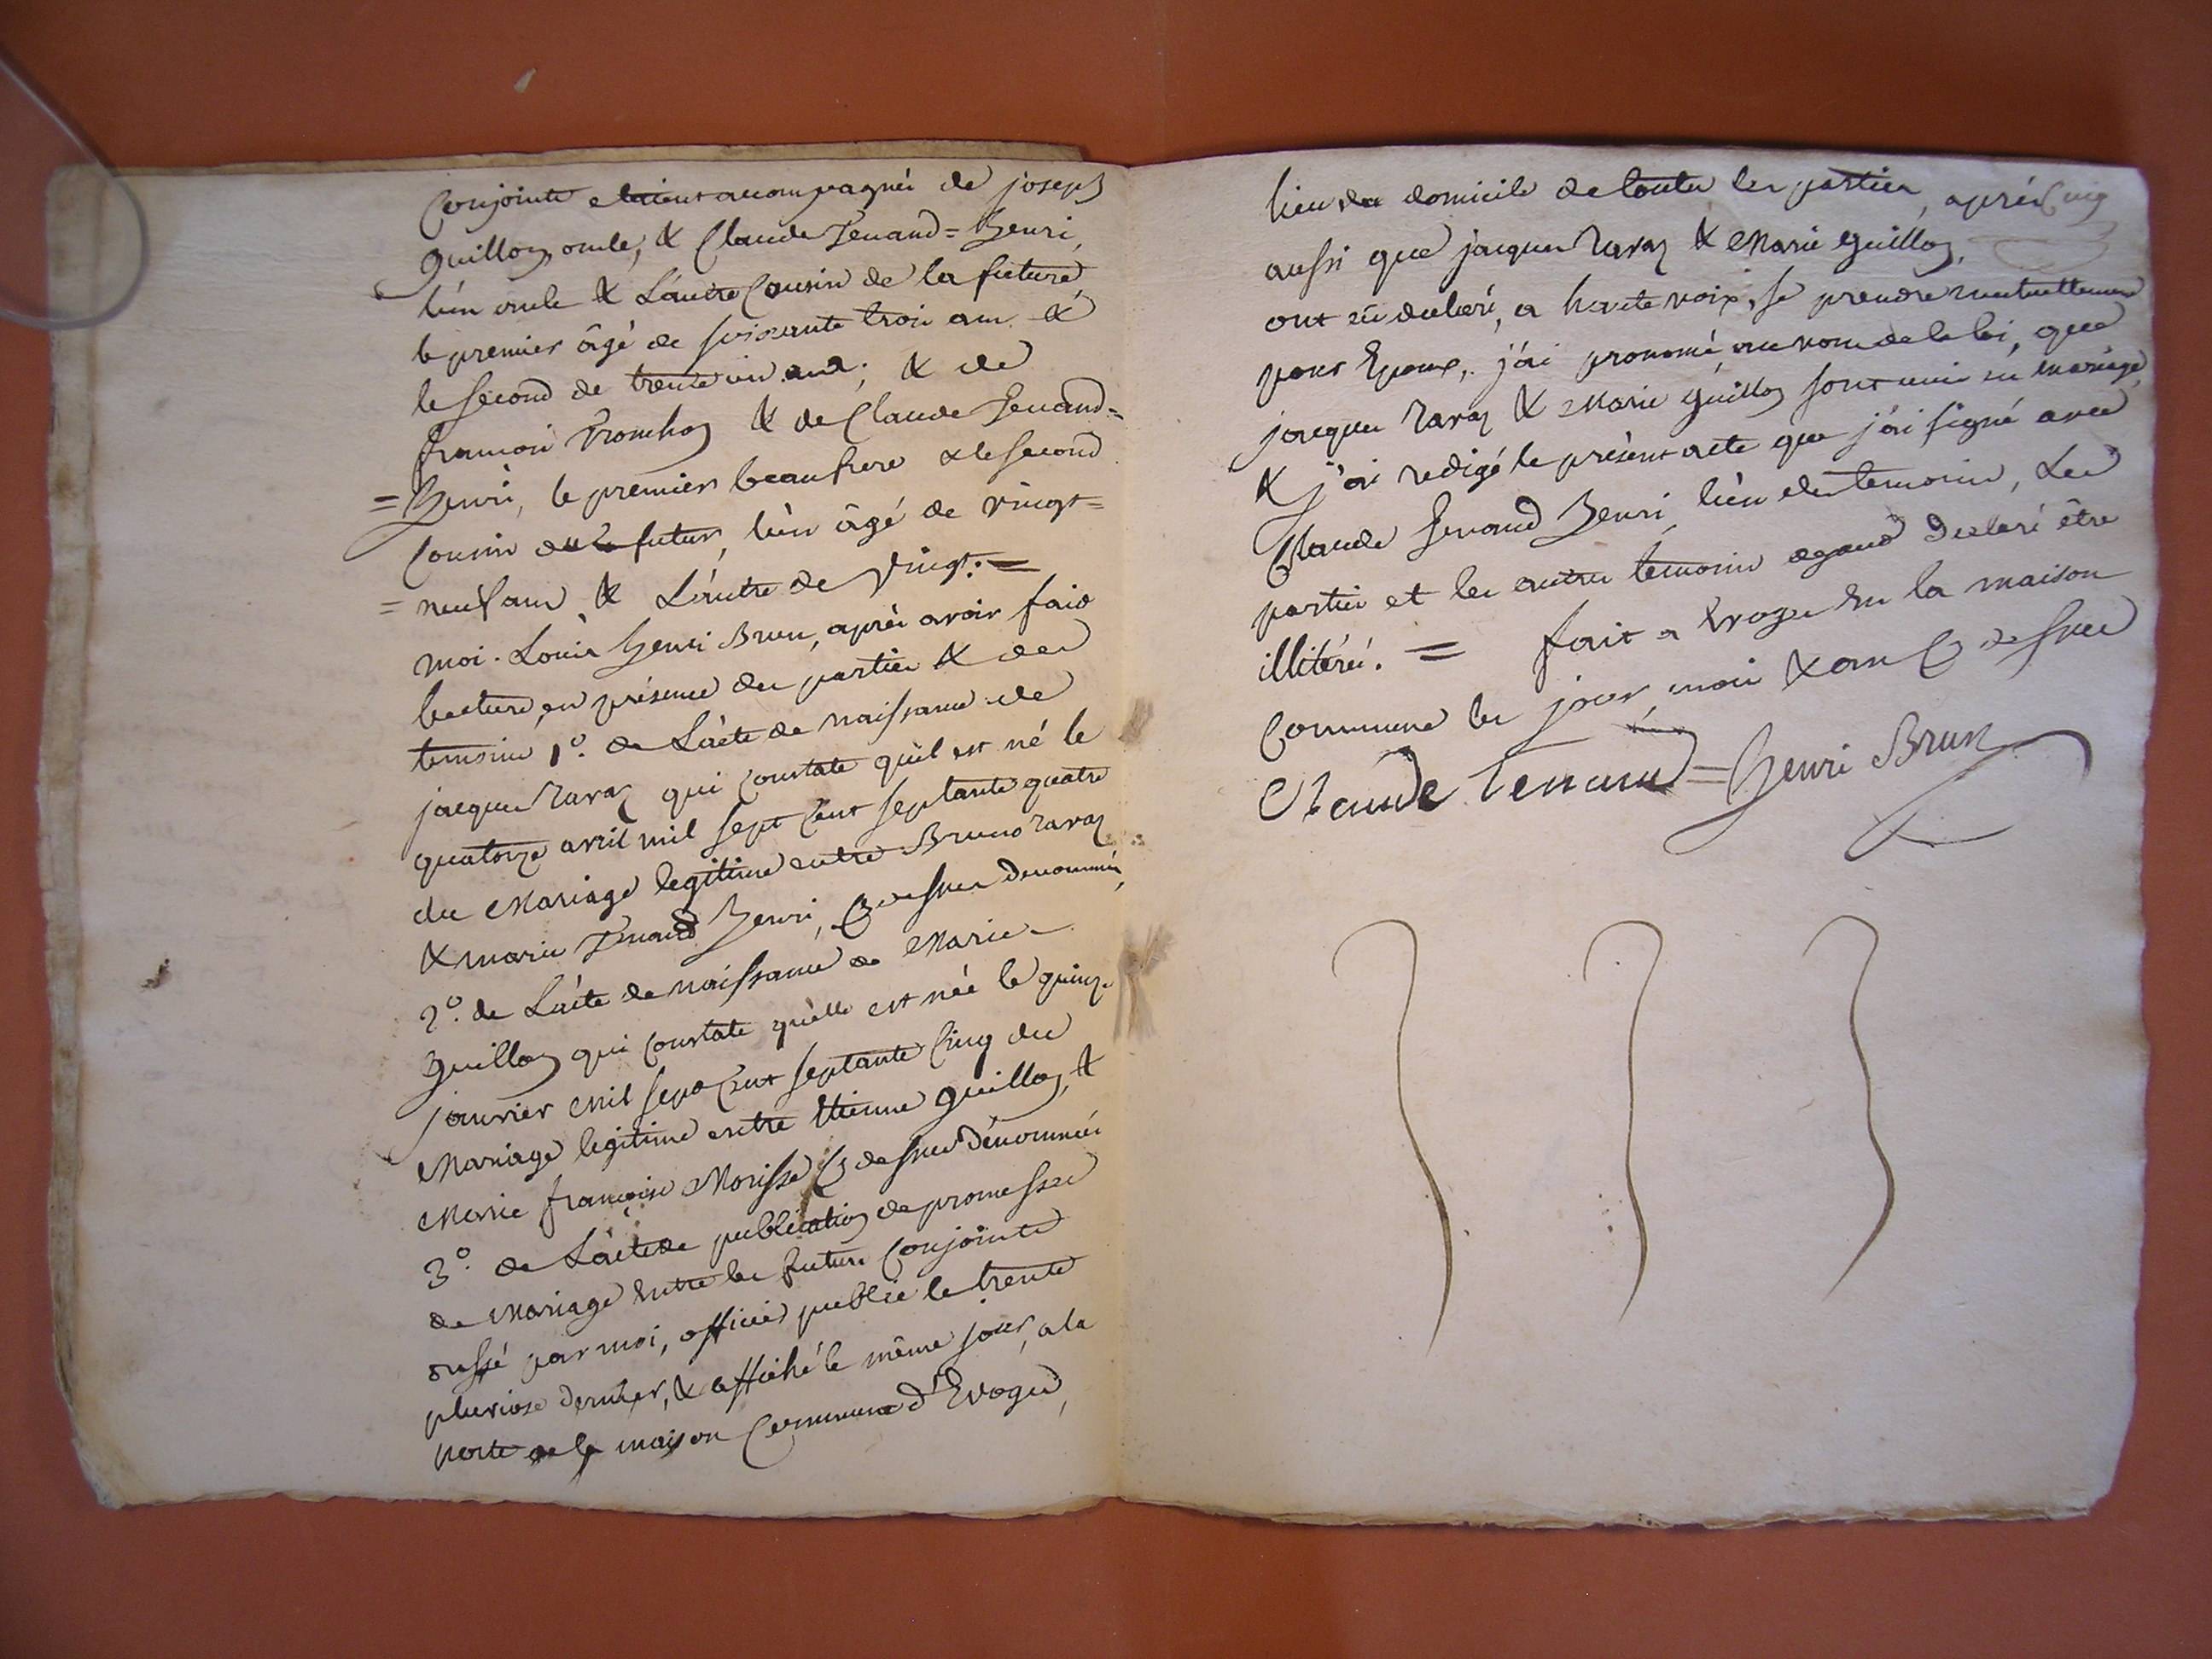 Conjoints etoient acompagnés de joseph
Guillon oncle, & Claude Tenand = Henri,
l'un oncle & L'autre Cousin de la future,
le premier âgé de soixante trois ans &
le second de trente un ans; & de
francois Tronchon & de Claude Tenand =
= Henri, le premier beaufrere & le second
Cousin du futur, l'un âgé de vingt =
= neuf ans & L'autre de vingt. =
moi. Louis Henri Brun, après avoir fait
lecture, en présence des parties & des
temoins 1°. de L'acte de naissance de
jacques Ravaz qui Constate qu'il est né le
quatorze avril mil sept Cent septante quatre
du Mariage legitime entre Bruno Ravaz
& marie Tenand Henri, Cy dessus denommés,
2°. de L'acte de naissance de Marie
Guillon qui Constate qu'elle est née le quinze
janvier mil sept Cent septante Cinq du
Mariage legitime entre Etienne Guillon &
Marie françoise Morisse Cy dessus dénommés
3°. de L'acte de publication de promesses
de Mariage entre les futurs Conjoints
dressé par moi, officier public le trente
pluviose dernier, & affiché le même jour, a la
porte de la maison Commune d'Evoges,
lieu du domicile de toutes les parties, après
aussi que jacques Ravaz & Marie Guillon,
ont eu declaré, a haute voix, se prendre mutuellement
pour Epoux, j'ai prononcé au nom de la loi, que
jacques Ravaz & Marie Guillon sont unis en mariage,
& j'ai redigé le présent acte que j'ai signé avec
Claude Tenand Henri, l'un des temoins, Les
parties et les autres temoins ayand declaré être
illitérés. = fait a Evoges en la maison
Commune les jour, mois & an Cy dessus
Claude Tenand = Henri Brun